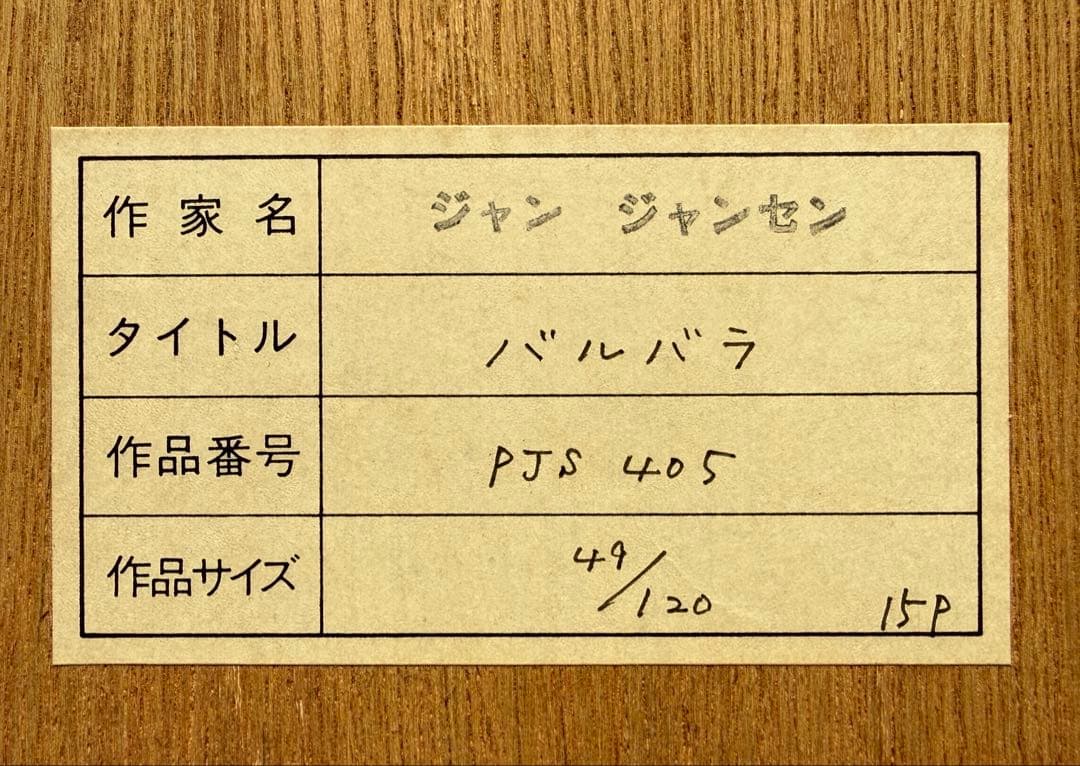 作家名 ジャン ジャンセン
タイトル バルバラ
作品番号 PJS 405
作品サイズ 49/120 15P